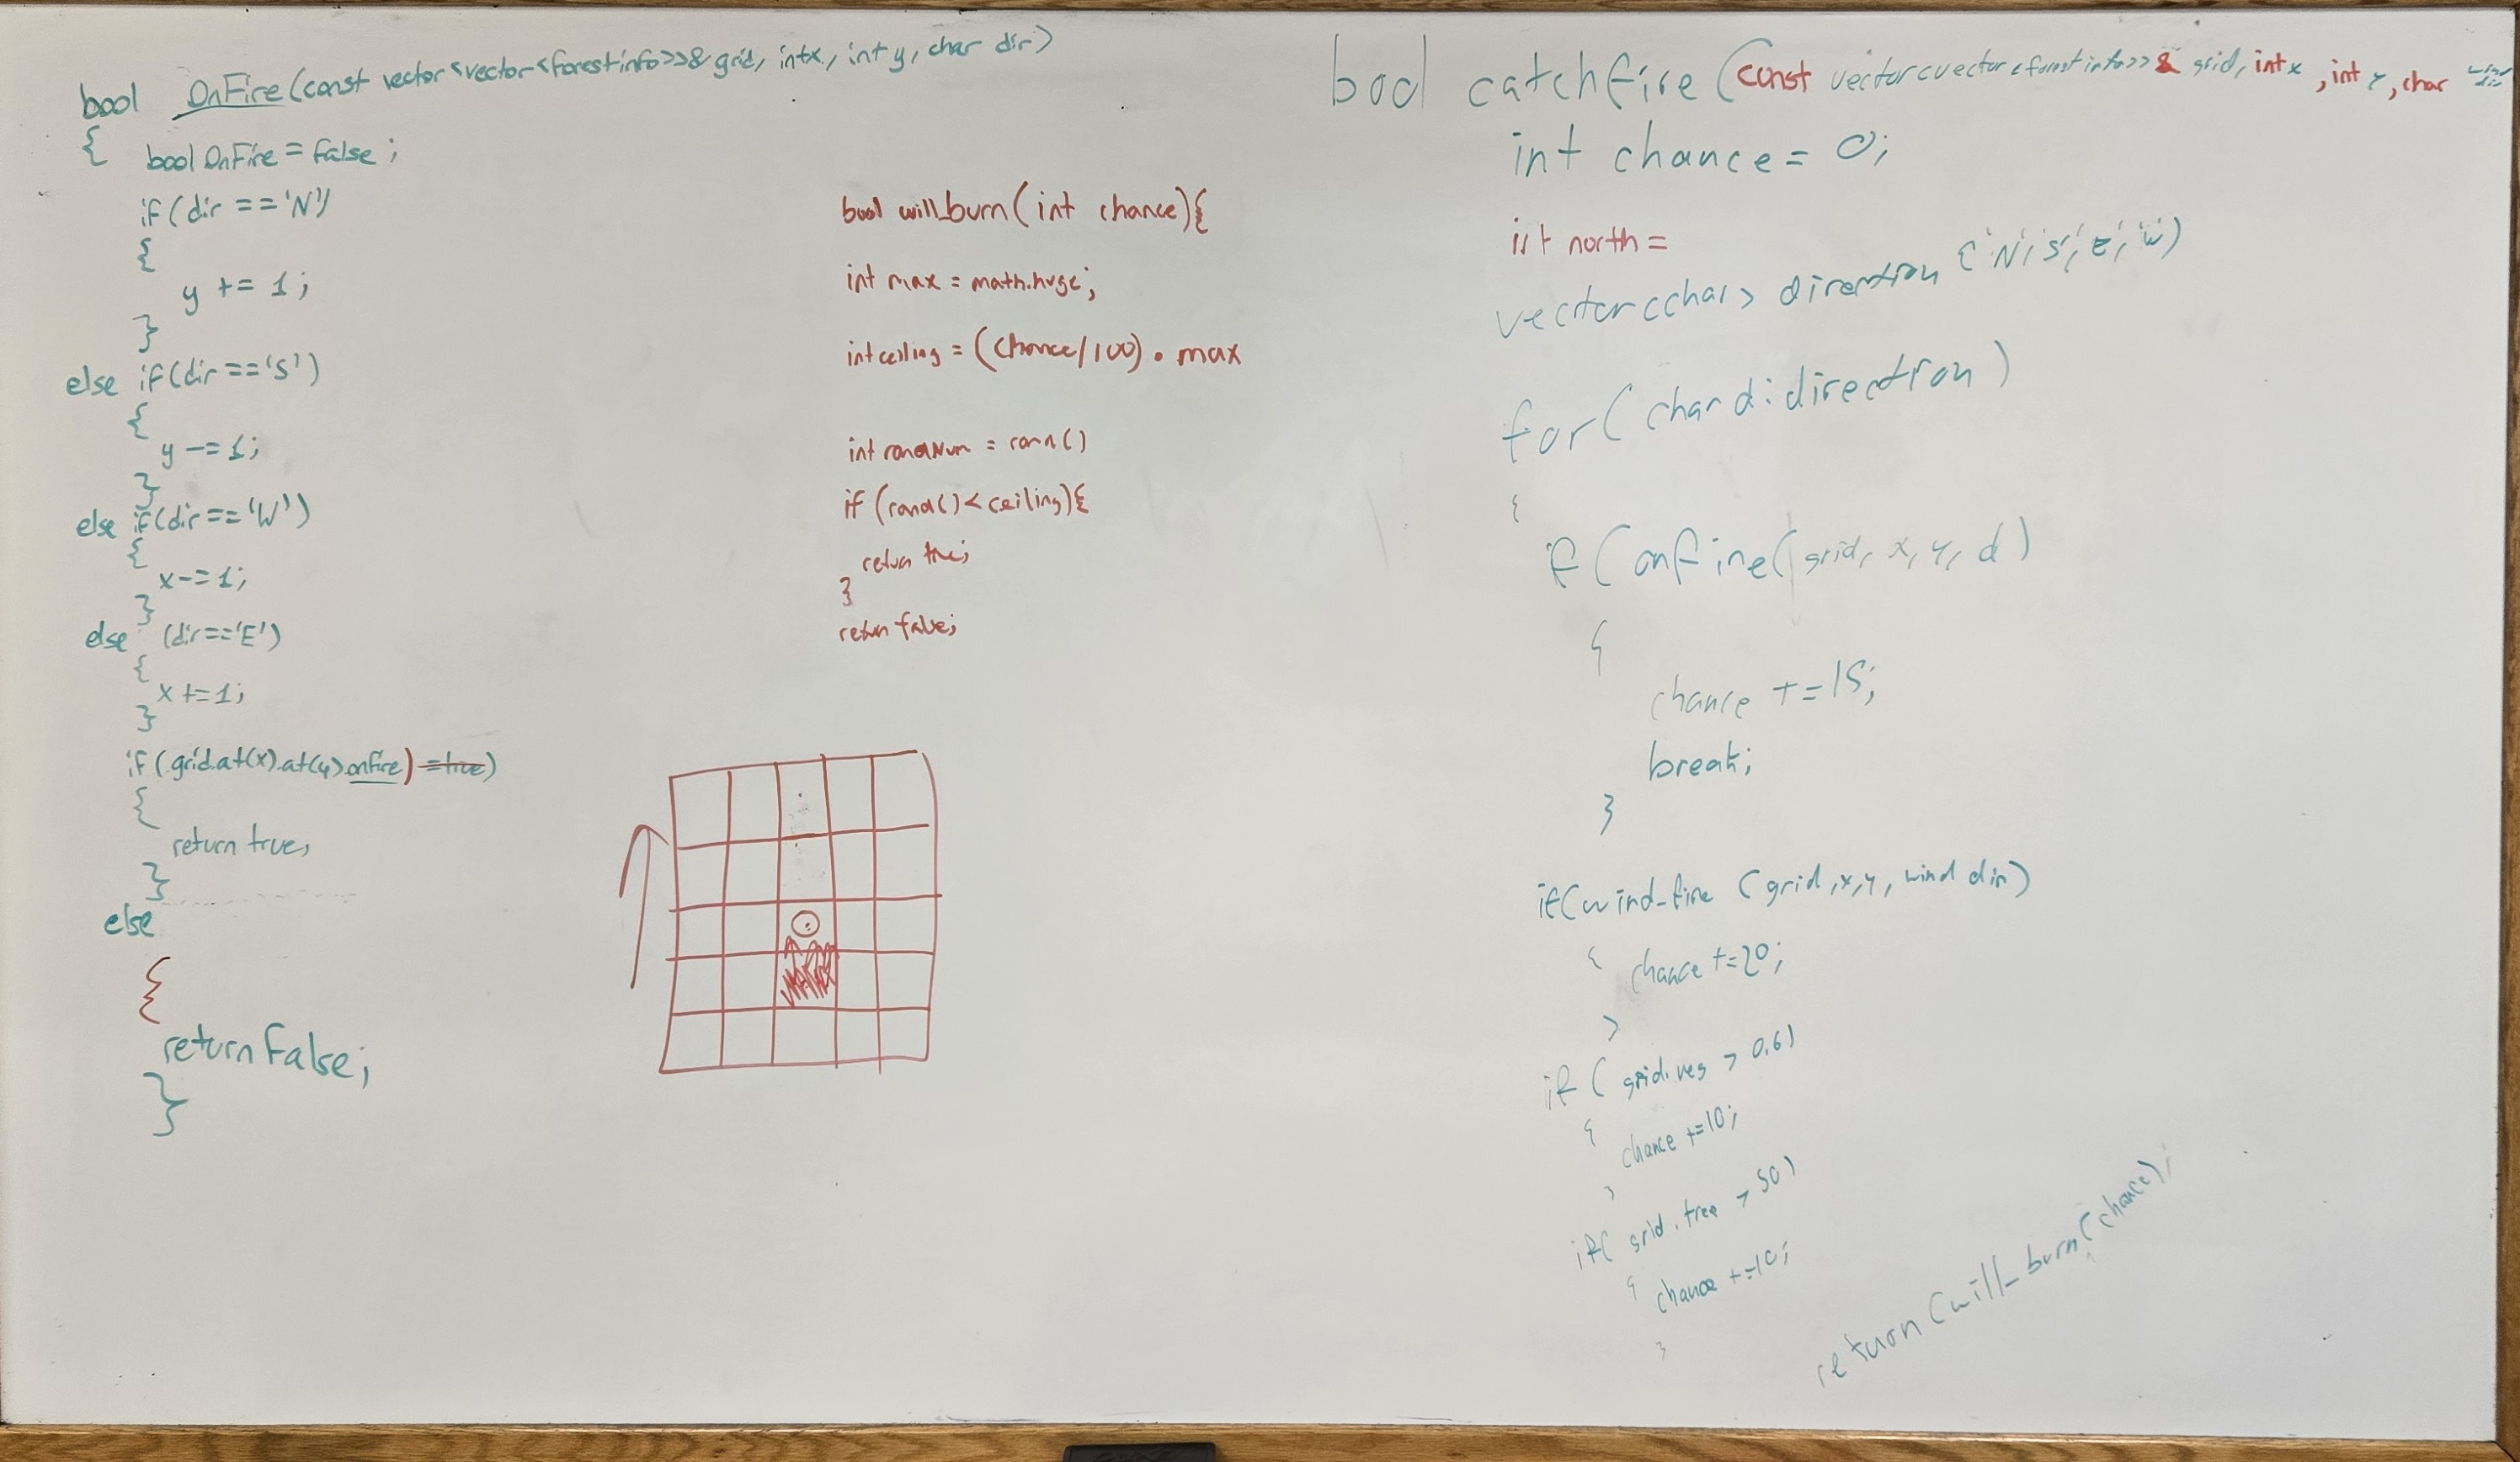 bool OnFire(const vector<vector<forestinfo>>& grid, int x, int y, char dir)
{
bool OnFire = false;
if(dir =='N')
{
y += 1;
}
else if(dir =='S')
{
y -= 1;
}
else if(dir =='W')
{
x -= 1;
}
else (dir=='E')
{
x += 1;
}
if(grid.at(x).at(y).onfire) =true)
{
return true;
}
else
{
return false;
}
bool will_burn(int chance){
int max = math.huge;
int ceiling = (chance/100) • max
int randNum = rand()
if (rand() < ceiling){
return true;
}
return false;
bool catchfire (const vector<vector<forestinfo>>& grid, int x, int y, char
int chance = 0;
int north =
vector<char> direction {'N','S','E','W')
for( char d: direction )
{
if(onfire(grid, x, y, d)
{
chance += 15;
break;
}
if(wind_fire (grid,x,y, wind dir)
{ chance += 20;
}
if ( grid.veg > 0.6)
{ chance +=10;
}
if( grid.tree > 50)
{ chance +=10;
}
return (will_burn(chance);